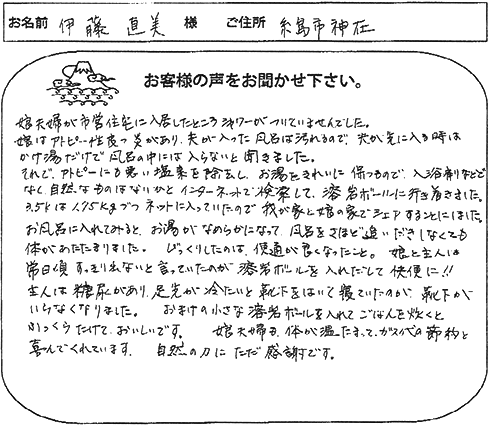 お名前 伊藤 直美 様 ご住所 糸島市神在
お客様の声をお聞かせ下さい。
娘夫婦が市営住宅に入居したところシャワーがついていませんでした。
娘はアトピー性皮フ炎があり、夫が入った風呂は汚れるので、夫が先に入る時は
かけ湯だけで風呂の中には入らないと聞きました。
それで、アトピーにも悪い塩素を除去し、お湯をきれいに保つもので、入浴剤などで
なく、自然なものはないかとインターネットで検索して、溶岩ボールに行き着きました。
3.5kは1.75kgづつネットに入っていたので我が家と娘の家でシェアすることにしました。
お風呂に入れてみると、お湯がなめらかになって、風呂をさほど追いだきしなくても
体があたたまりました。 びっくりしたのは、便通が良くなったこと。 娘と主人は
常日頃すっきり出ないと言っていたのが溶岩ボールを入れだして快便に!!
主人は糖尿があり、足先が冷たいと靴下をはいて寝ていたのが、靴下が
いらなくなりました。 おまけの小さな溶岩ボールを入れてごはんを炊くと
ふっくらたけて、おいしいです。 娘夫婦も、体が温たまって、ガス代の節約と
喜んでくれています。 自然の力にただ感謝です。